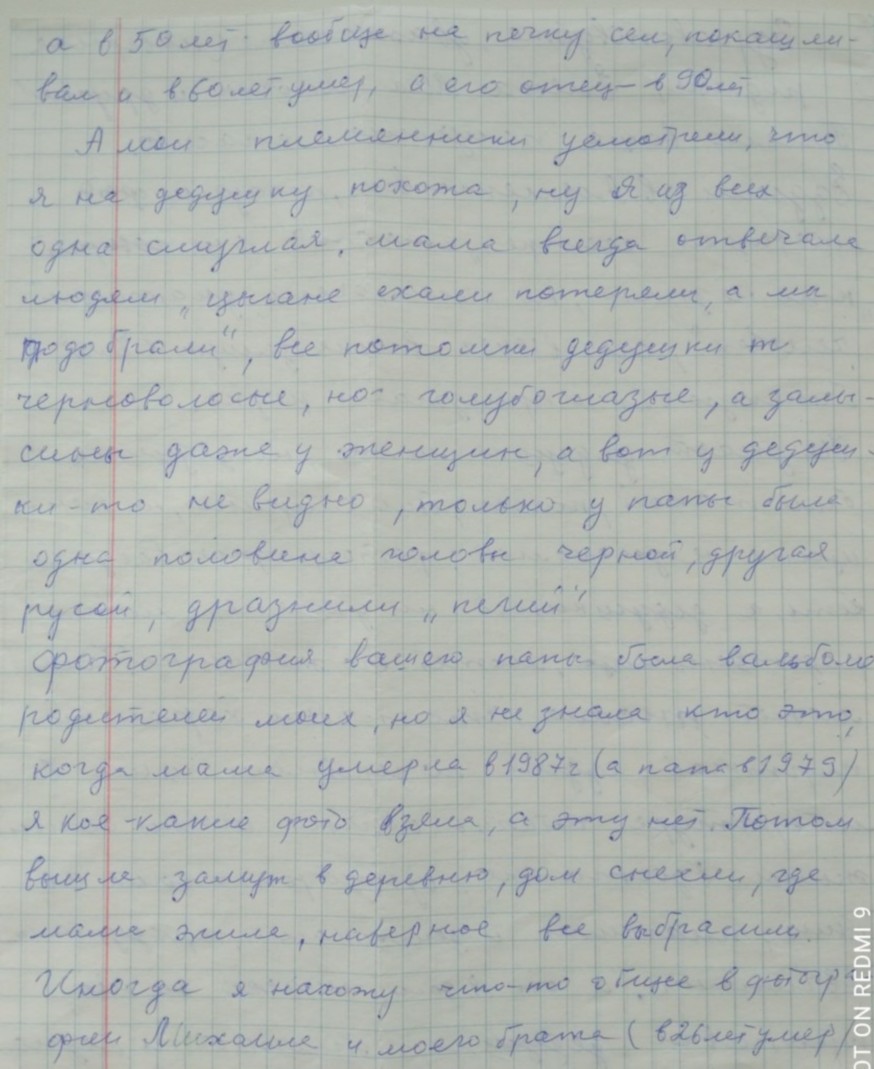 а в 50 лет вообще на печку сел, покашли-
вал и в 60 лет умер, а его отец - в 90 лет
А мои племянники усмотрели, что
я на дедушку похожа, ну я из всех
одна смуглая, мама всегда отвечала
людям „цыгане ехали потеряли, а мы
подобрали", все потомки дедушки т
черноволосые, но голубоглазые, а залы-
сины даже у женщин, а вот у дедуш-
ки-то не видно, только у папы была
одна половина головы черной, другая
русой, дразнили „пегий"
Фотография вашего папы была в альбоме
родителей моих, но я не знала кто это,
когда мама умерла в 1987г (а папа в 1979)
я кое-какие фото взяла, а эту нет. Потом
вышла замуж в деревню, дом снесли, где
мама жила, наверное все выбрасили.
Иногда я нахожу что-то общее в фотогра
фии Михаила и моего брата (в 26 лет умер)
SHOT ON REDMI 9